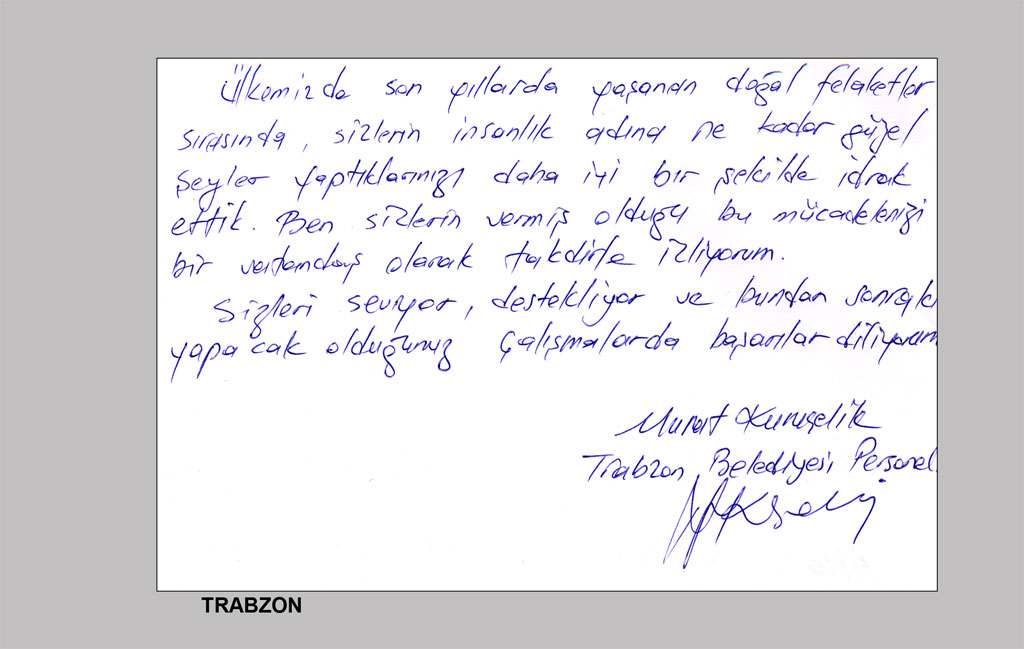 Ülkemizde son yıllarda yaşanan doğal felaketler
sırasında, sizlerin insanlık adına ne kadar güzel
şeyler yaptıklarınızı daha iyi bir şekilde idrak
ettik. Ben sizlerin vermiş olduğu bu mücadelenizi
bir vatandaş olarak takdirle izliyorum.
Sizleri seviyor, destekliyor ve bundan sonraki
yapacak olduğunuz çalışmalarda başarılar diliyorum
Murat
Trabzon Belediyesi Personel
TRABZON